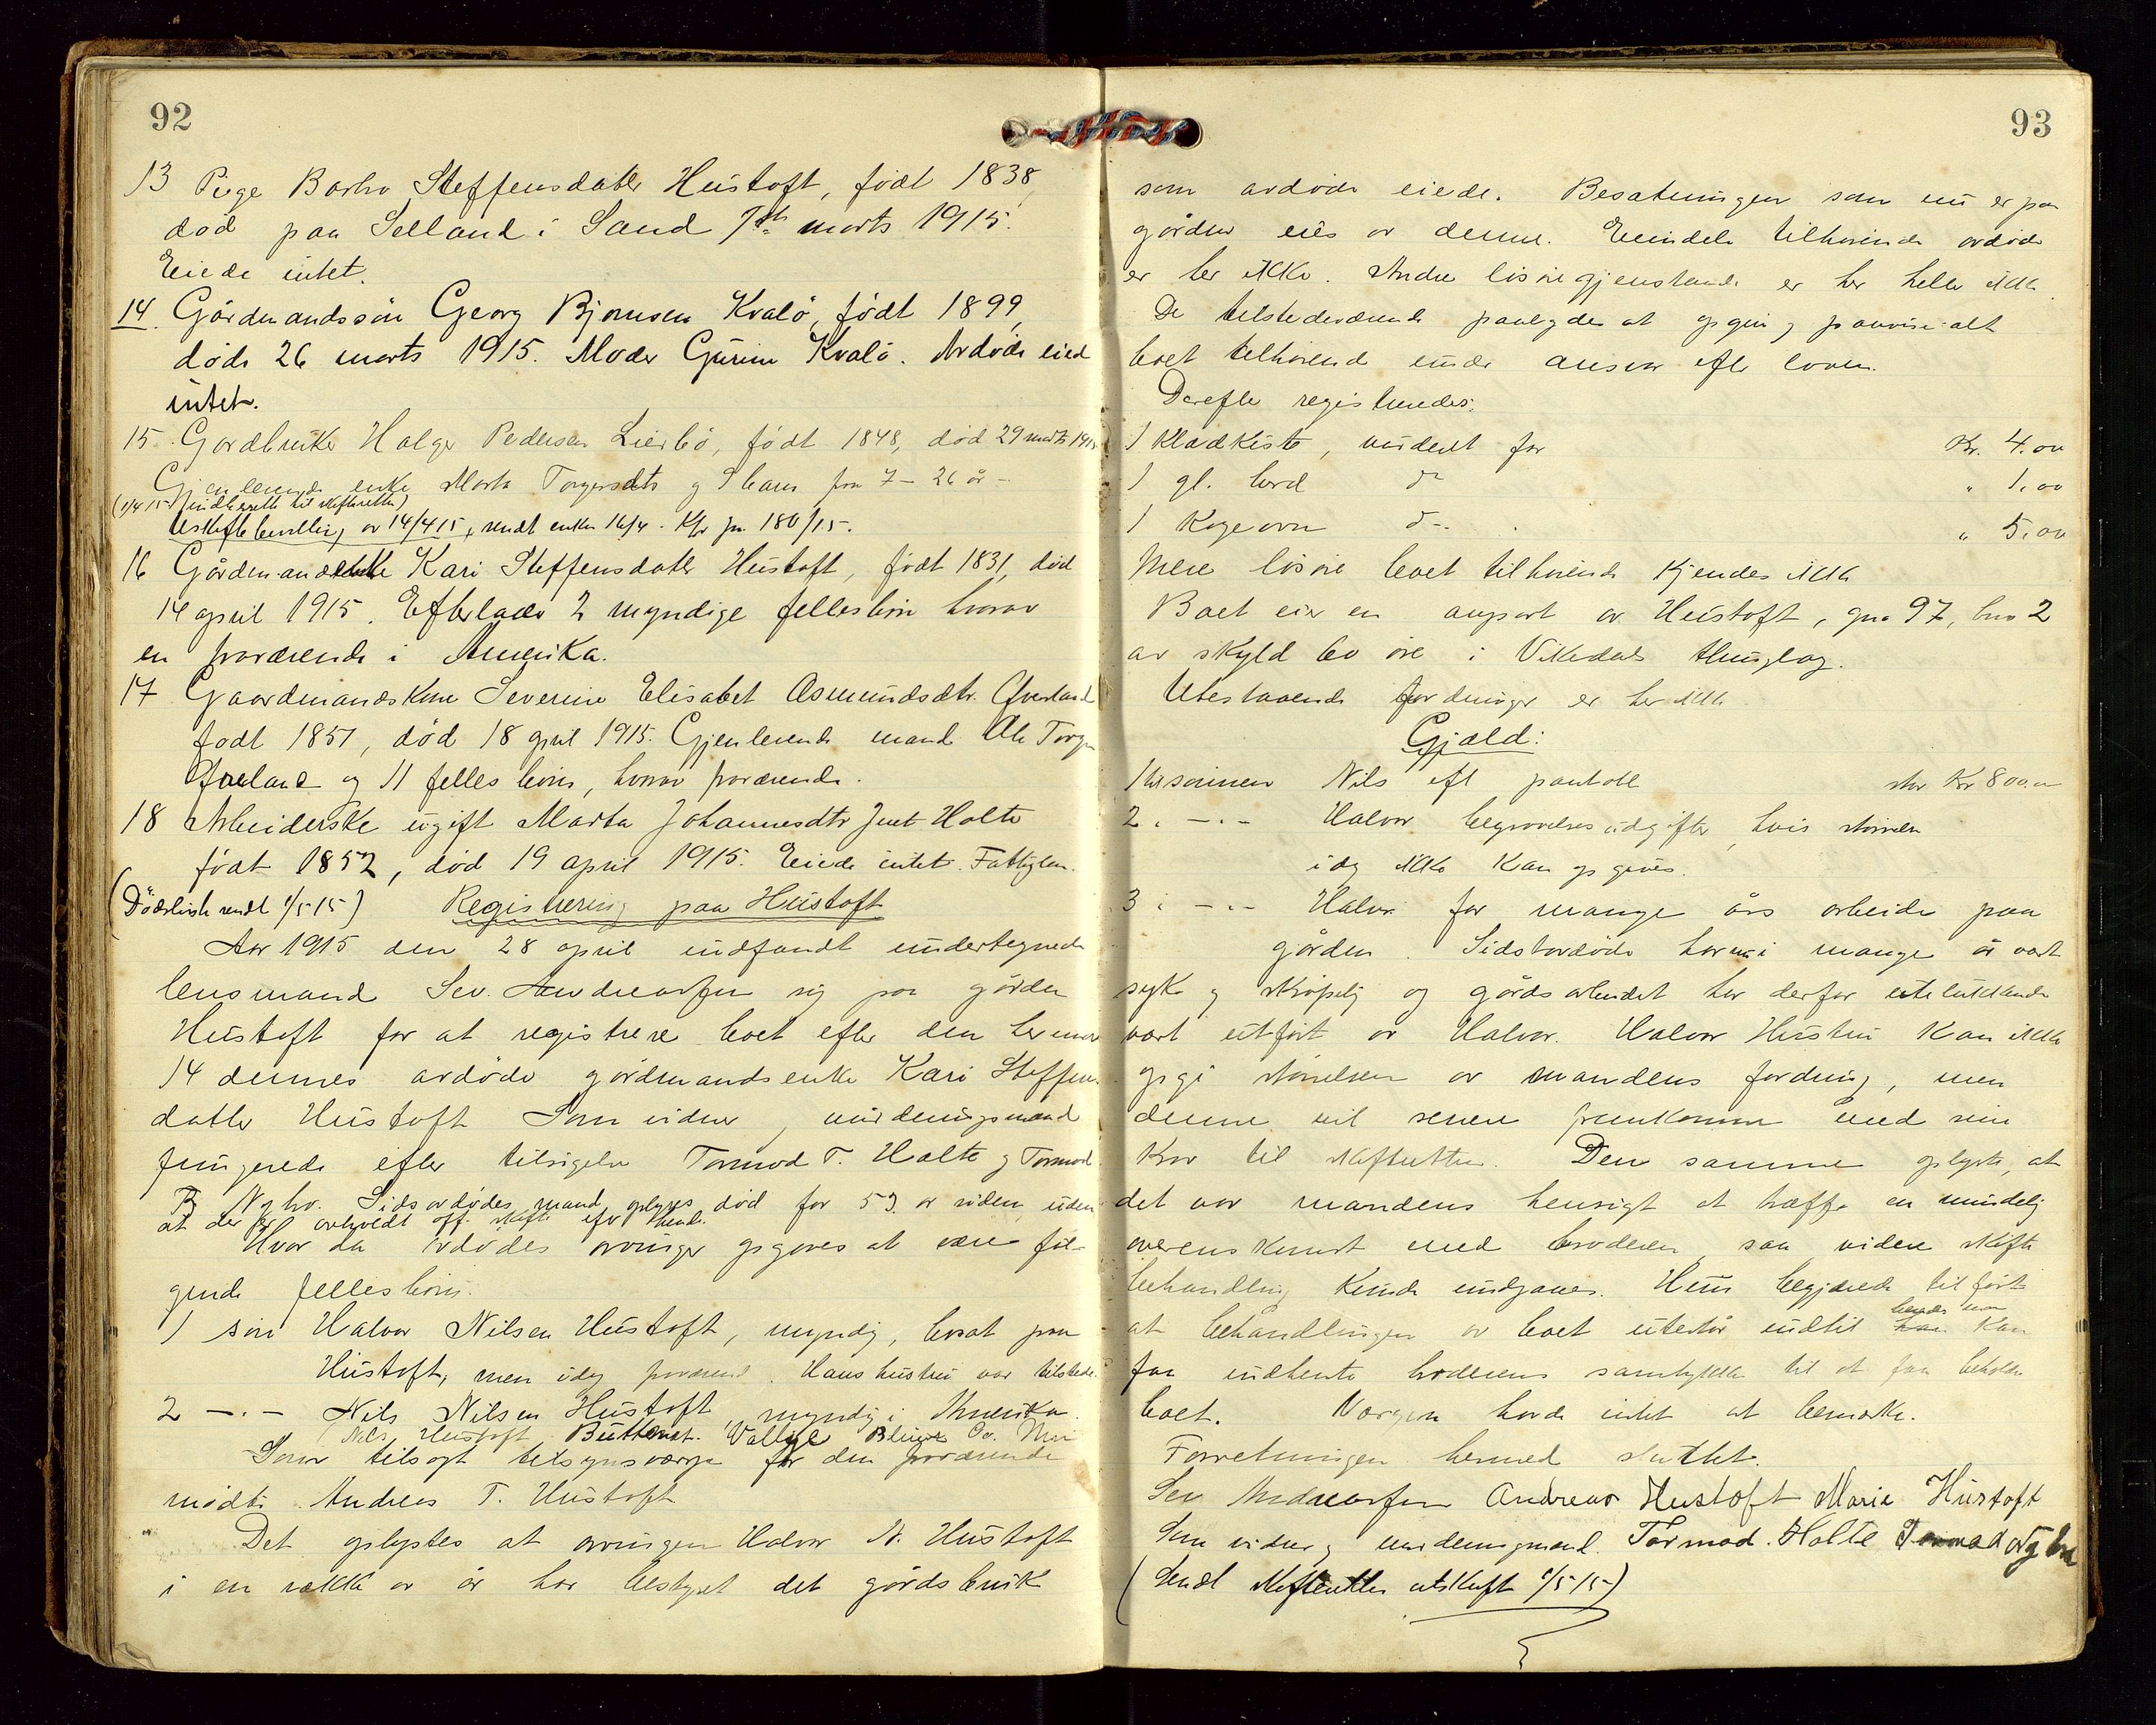 92
13 Pige Barbro Steffensdatter Hustoft, født 1838,
död paa Selland i Sand 7de marts 1915.
Eiede intet.
14 Gårdmandssön Georg Bjornsen Kvalö, født 1899,
döde 26 marts 1915. Moder Gurine Kvalö. Avdöde eied
intet.
15. Gardbruker Helge Pedersen Lierbö, födt 1848, död 29 marts 1915
Gjenlevende enke Marta Torgersdtr og 9 barn fra 7 - 26 år -
(1/4 15 indberettet til skifteretten)
Uskiftebevilling av 14/4 15, sendt enken 16/4. Kfr jn 180/15.
16 Gårdmandsenke Kari Steffensdatter Hustoft, födt 1831, död
14 april 1915. Efterlader 2 myndige fellesbörn hvorav
en fraværende i Amerika.
17 Gaardmandskone Severine Elisabet Asmundsdtr.
födt 1851, död 18 april 1915. Gjenlevende mand Ole
og 11 felles börn, hvorav fraværende.
18 Arbeiderske ugift Marta Johannesdtr Holte
födt 1852, död 19 april 1915. Eiede intet. Fattiglem.
(Dödsliste sendt 1/5 15) Registrering paa Hustoft
Aar 1915 den 28 april indfandt undertegnede
lensmand Sev. Andreassen sig paa gården
Hustoft for at registrere boet efter den her
14 dennes avdöde gårdmandsenke Kari Steffens
datter Hustoft Som vidner, vurderingsmænd
fungerede efter tilsigelse Tormod T. Holte og Tormod
B. Nybro. Sidsavdödes mand oplyses död for 53 år siden uden
at der er avholdt off. skifte efter hende.
Hvor da avdödes arvinger opgaves at være föl-
gende fellesbörn.
1 sön Halvor Nilsen Hustoft, myndig, bosat paa
Hustoft, men idag fraværende. Hans hustru var tilstede.
2 -"- Nils Nilsen Hustoft myndig i Amerika.
Nils Hustoft
Som tilsagt tilsynsværge for den fraværende
mödte Andreas T. Hustoft
Det oplystes at arvingen Halvor N. Hustoft
i en række av år har bestyret det gårdsbruk
93
som avdöde eiede. Besætningen som nu er paa
gården eies av denne. Eiendele tilhörende avdöde
er her ikke. Andre lösöregjenstande er her heller ikke.
De tilstedeværende paalagdes at opgi og paavise alt
boet tilhörende under ansvar efter loven.
Derefter registreredes:
1 klædkiste, vurderet for Kr. 4.00
1 gl. bord do " 1.00
1 Kogeovn do " 5.00
Mere lösöre boet tilhörende kjendes ikke
Boet eier en anpart av Hustoft, gno 97, bno 2
av skyld 60 öre i Vikedals thinglag.
Utestaaende fordringer er her ikke
Gjæld:
1 til sönnen Nils eft pantobl stor Kr 800.00
2. -"- Halvor begravelsesudgifter, hvis störrelse
idag ikke kan opgives.
3. -"- Halvor for mange års arbeide paa
gården. Sidstavdöde har nu i mange år vært
syk og skröpelig og gårdsarbeidet har derfor utelukkende
vært utfört av Halvor. Halvors Hustru kan ikke
opgi störrelsen av mandens fordring, men
denne vil senere fremkomme med sin
krav til skifteretten. Den samme oplyste, at
det var mandens hensigt at træffe en mindelig
overenskomst med broderen, saa videre skifte
behandling kunde undgaaes. Hun begjærede tilfört
at behandlingen av boet utestår indtil hendes man kan
faa indhente broderens samtykke til at faa beholde
boet. Værgen havde intet at bemærke.
Forretningen hermed sluttet.
Sev Andreassen Andreas Hustoft Marie Hustoft
Som vidner og vurderingsmænd. Tormod. Holte Tormod Nybru
(Sendt skifteretten utskrift 1/5 15)